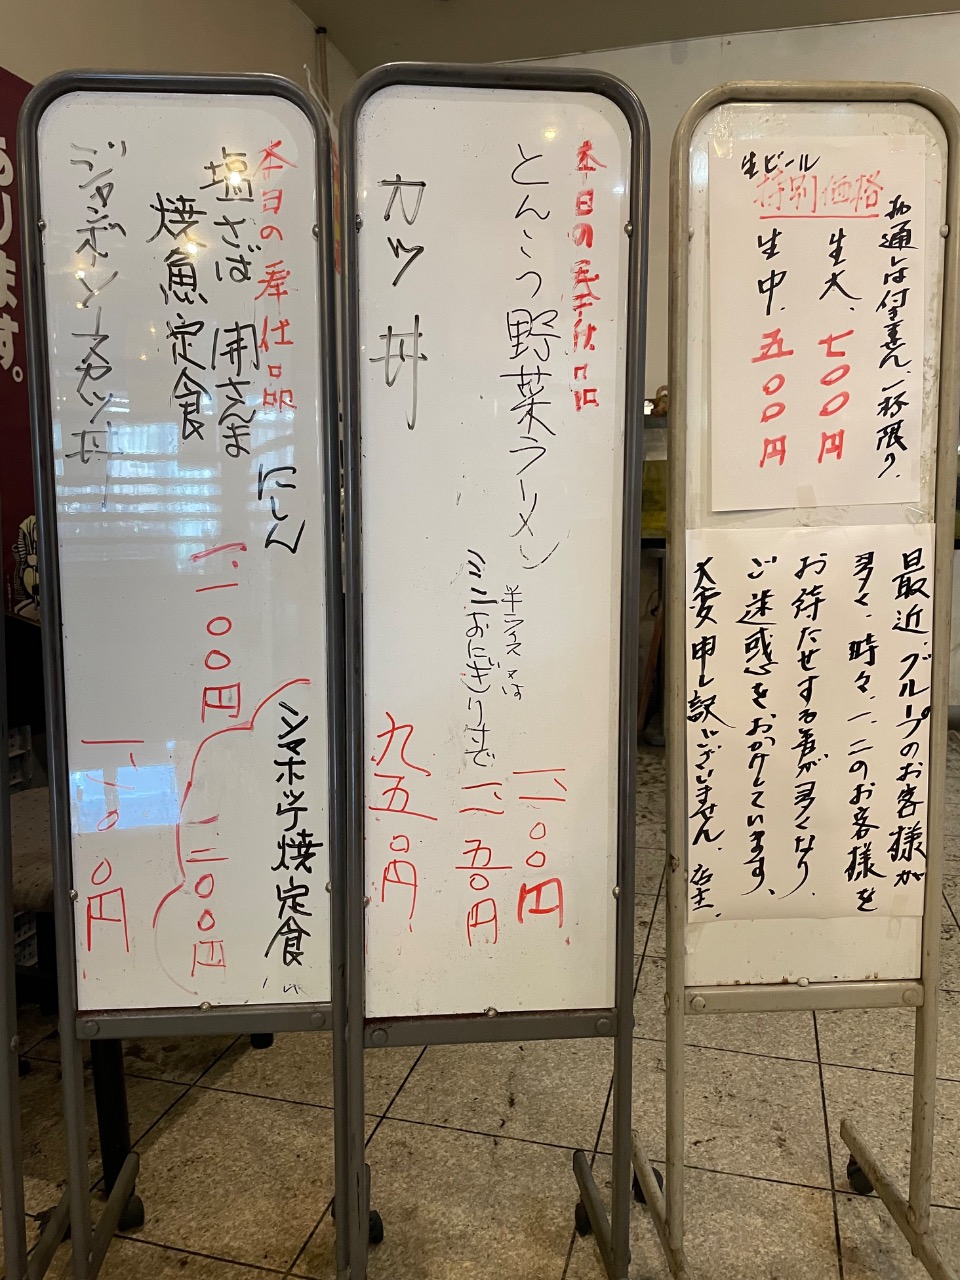 生ビール
特別価格
お通しは付きません、一杯限り、
生大、七〇〇円
生中、五〇〇円
最近、グループのお客様が
多く、時々、一、二のお客様を
お待たせする事が多くなり、
ご迷惑をおかけしています、
大変申し訳ございません、店主、
本日の奉仕品
とんこつ野菜ラーメン
半ライス又は
ミニおにぎりまで
一、一〇〇円
一、一五〇円
カツ丼
九五〇円
本日の奉仕品
にしん
塩さば 開さんま
焼魚定食
一、一〇〇円
シマホッケ焼定食
一、二〇〇円
ジャンボソースカツ丼
ります。